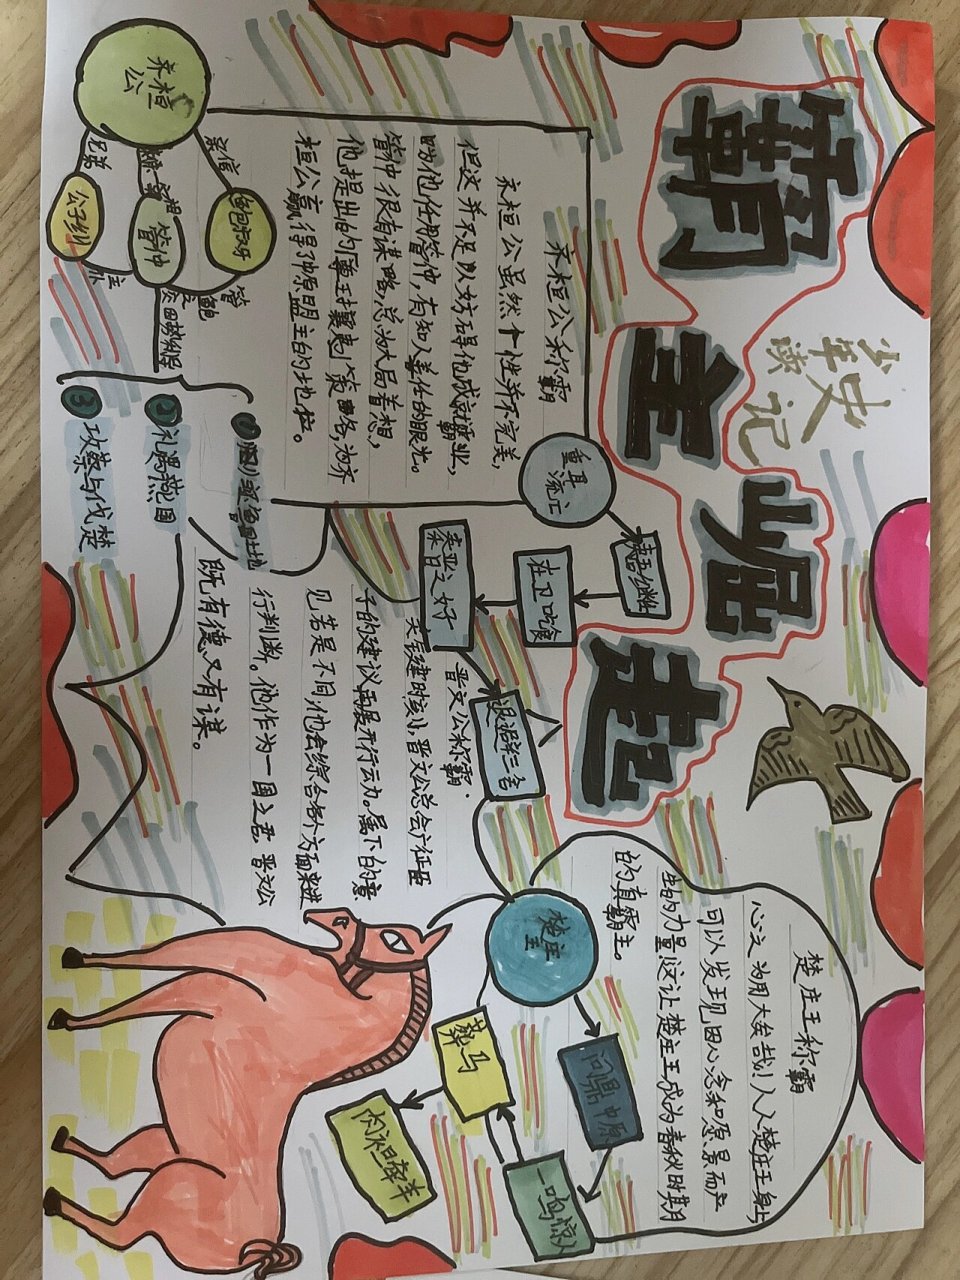 霸主崛起
少年读
史记
齐桓公
亲信
兄弟
鲍叔牙
管仲
公子纠
管
鲍
之
交
齐桓公称霸
齐桓公虽然个性并不完美，
但这并不足以妨碍他成就霸业，
她他任用管仲，有知人善任的眼光。
管仲很有谋略，总为大局着想，
他提出的尊王攘夷策略，为齐
桓公赢得了中原盟主的地位。
②礼遇燕国
③攻蔡与伐楚
重耳
流亡
在卫吃
秦晋之好
退避三舍
晋文公称霸
晋文公总会广征臣
子的建议再展开行动。属下的意
见若是不同他会综合各个方面来进
行判断。他作为一国之君，晋文公
既有德又有谋。
楚庄王
问鼎中原
一鸣惊人
葬马
肉袒牵羊
楚庄王称霸
心之为用大矣哉！从楚庄王身上
可以发现因心念和愿景而产
生的力量，这让楚庄王成为春秋时期
的真霸主。